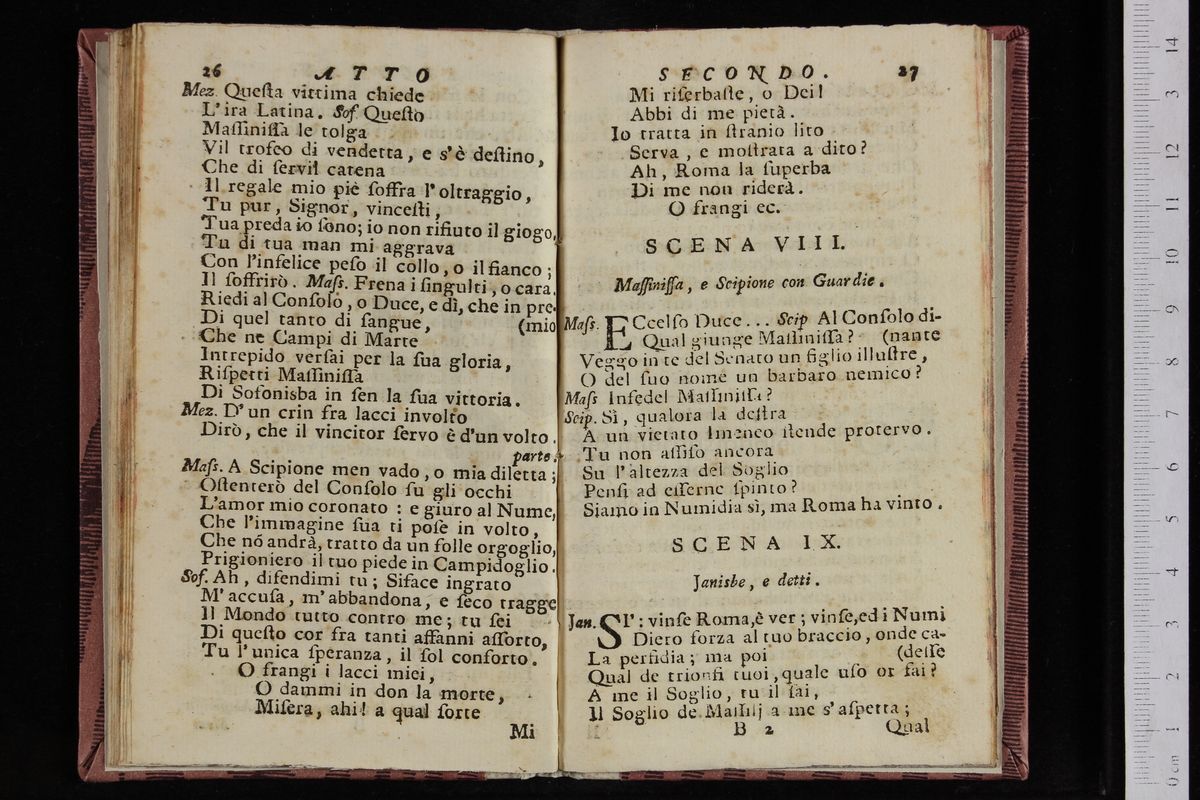 26 ATTO
Mez. Queſta vittima chiede
L'ira Latina. Sof. Queſto
Maſſiniſſa le tolga
Vil trofeo di vendetta, e s'è deſtino,
Che di ſervil catena
Il regale mio piè ſoffra l'oltraggio,
Tu pur, Signor, vinceſti,
Tua preda io ſono; io non rifiuto il giogo,
Tu di tua man mi aggrava
Con l'infelice peſo il collo, o il fianco;
Il ſoffrirò. Maſs. Frena i ſingulti, o cara.
Riedi al Conſolo, o Duce, e dì, che in pre-
Di quel tanto di ſangue, (mio
Che ne Campi di Marte
Intrepido verſai per la ſua gloria,
Riſpetti Maſſiniſſa
Di Sofonisba in ſen la ſua vittoria.
Mez. D'un crin fra lacci involto
Dirò, che il vincitor ſervo è d'un volto.
parte.
Maſs. A Scipione men vado, o mia diletta;
Oſtenterò del Conſolo ſu gli occhi
L'amor mio coronato : e giuro al Nume,
Che l'immagine ſua ti poſe in volto,
Che nó andrà, tratto da un folle orgoglio,
Prigioniero il tuo piede in Campidoglio.
Sof. Ah, difendimi tu; Siface ingrato
M'accuſa, m'abbandona, e ſeco tragge
Il Mondo tutto contro me; tu ſei
Di queſto cor fra tanti affanni aſſorto,
Tu l'unica ſperanza, il ſol conforto.
O frangi i lacci miei,
O dammi in don la morte,
Miſera, ahi! a qual ſorte
Mi
SECONDO. 27
Mi riſerbaſte, o Dei!
Abbi di me pietà.
Io tratta in ſtranio lito
Serva, e moſtrata a dito?
Ah, Roma la ſuperba
Di me non riderà.
O frangi ec.
SCENA VIII.
Maſſiniſſa, e Scipione con Guardie.
Maſs. ECcelſo Duce... Scip Al Conſolo di-
Qual giunge Maſſiniſſa? (nante
Veggo in te del Senato un figlio illuſtre,
O del ſuo nome un barbaro nemico?
Maſs Infedel Maſſiniſſa?
Scip. Sì, qualora la deſtra
A un vietato Imeneo ſtende protervo.
Tu non aſſiſo ancora
Su l'altezza del Soglio
Penſi ad eſſerne ſpinto?
Siamo in Numidia sì, ma Roma ha vinto.
SCENA IX.
Janisbe, e detti.
Jan. SI': vinſe Roma, è ver; vinſe, ed i Numi
Diero forza al tuo braccio, onde ca-
La perfidia; ma poi (deſſe
Qual de trionfi tuoi, quale uſo or fai?
A me il Soglio, tu il ſai,
Il Soglio de Maſſilj a me s'aſpetta;
B 2 Qual
0 cm 1 2 3 4 5 6 7 8 9 10 11 12 13 14